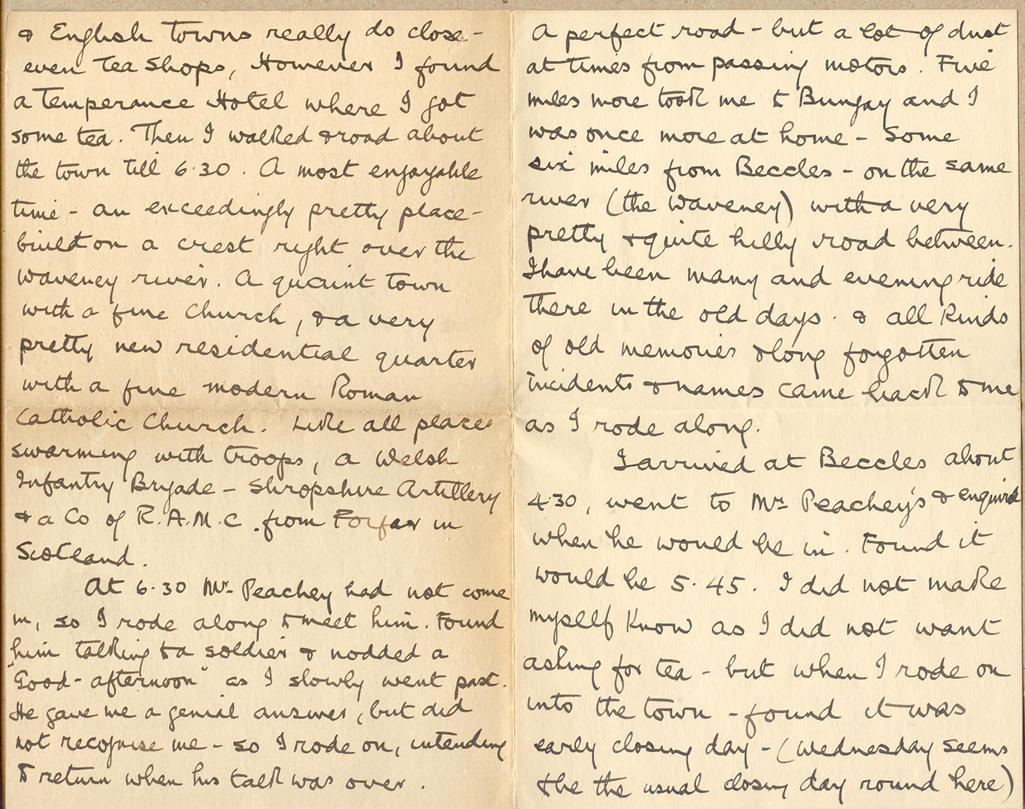 & English towns really do close -
even tea shops, However I found
a Temperance Hotel where I got
some tea. Then I walked & road about
the town till 6.30. A most enjoyable
time - an exceedingly pretty place -
build on a crest right over the
waveney river. A quaint town
with a fine church, & a very
pretty new residential quarter
with a fine modern Roman
Catholic Church. Like all places
swarming with troops, a Welsh
Infantry Brigade - Shropshire Artillery
& a Co of R.A.M.C. from Forfar in
Scotland.
At 6.30 Mr. Peachey had not come
in, so I rode along to meet him. Found
him talking to a soldier & nodded a
"Good-afternoon" as I slowly went past.
He gave me a genial answer, but did
not recognise me - so I rode on, intending
to return when his talk was over.
A perfect road - but a lot of dust
at times from passing motors. Five
miles more took me to Bungay and I
was once more at home - Some
six miles from Beccles - on the same
river (the Waveney) with a very
pretty & quite hilly road between.
I have been many and evening ride
there in the old days. & all kinds
of old memories & long forgotten
incidents & names came back to me
as I rode along.
I arrived at Beccles about
4.30, went to Mr Peachey's & enquired
when he would be in. Found it
would be 5.45. I did not make
myself known as I did not want
asking for tea - but when I rode on
into the town - found it was
early closing day - (Wednesday seems
to be the usual closing day round here)